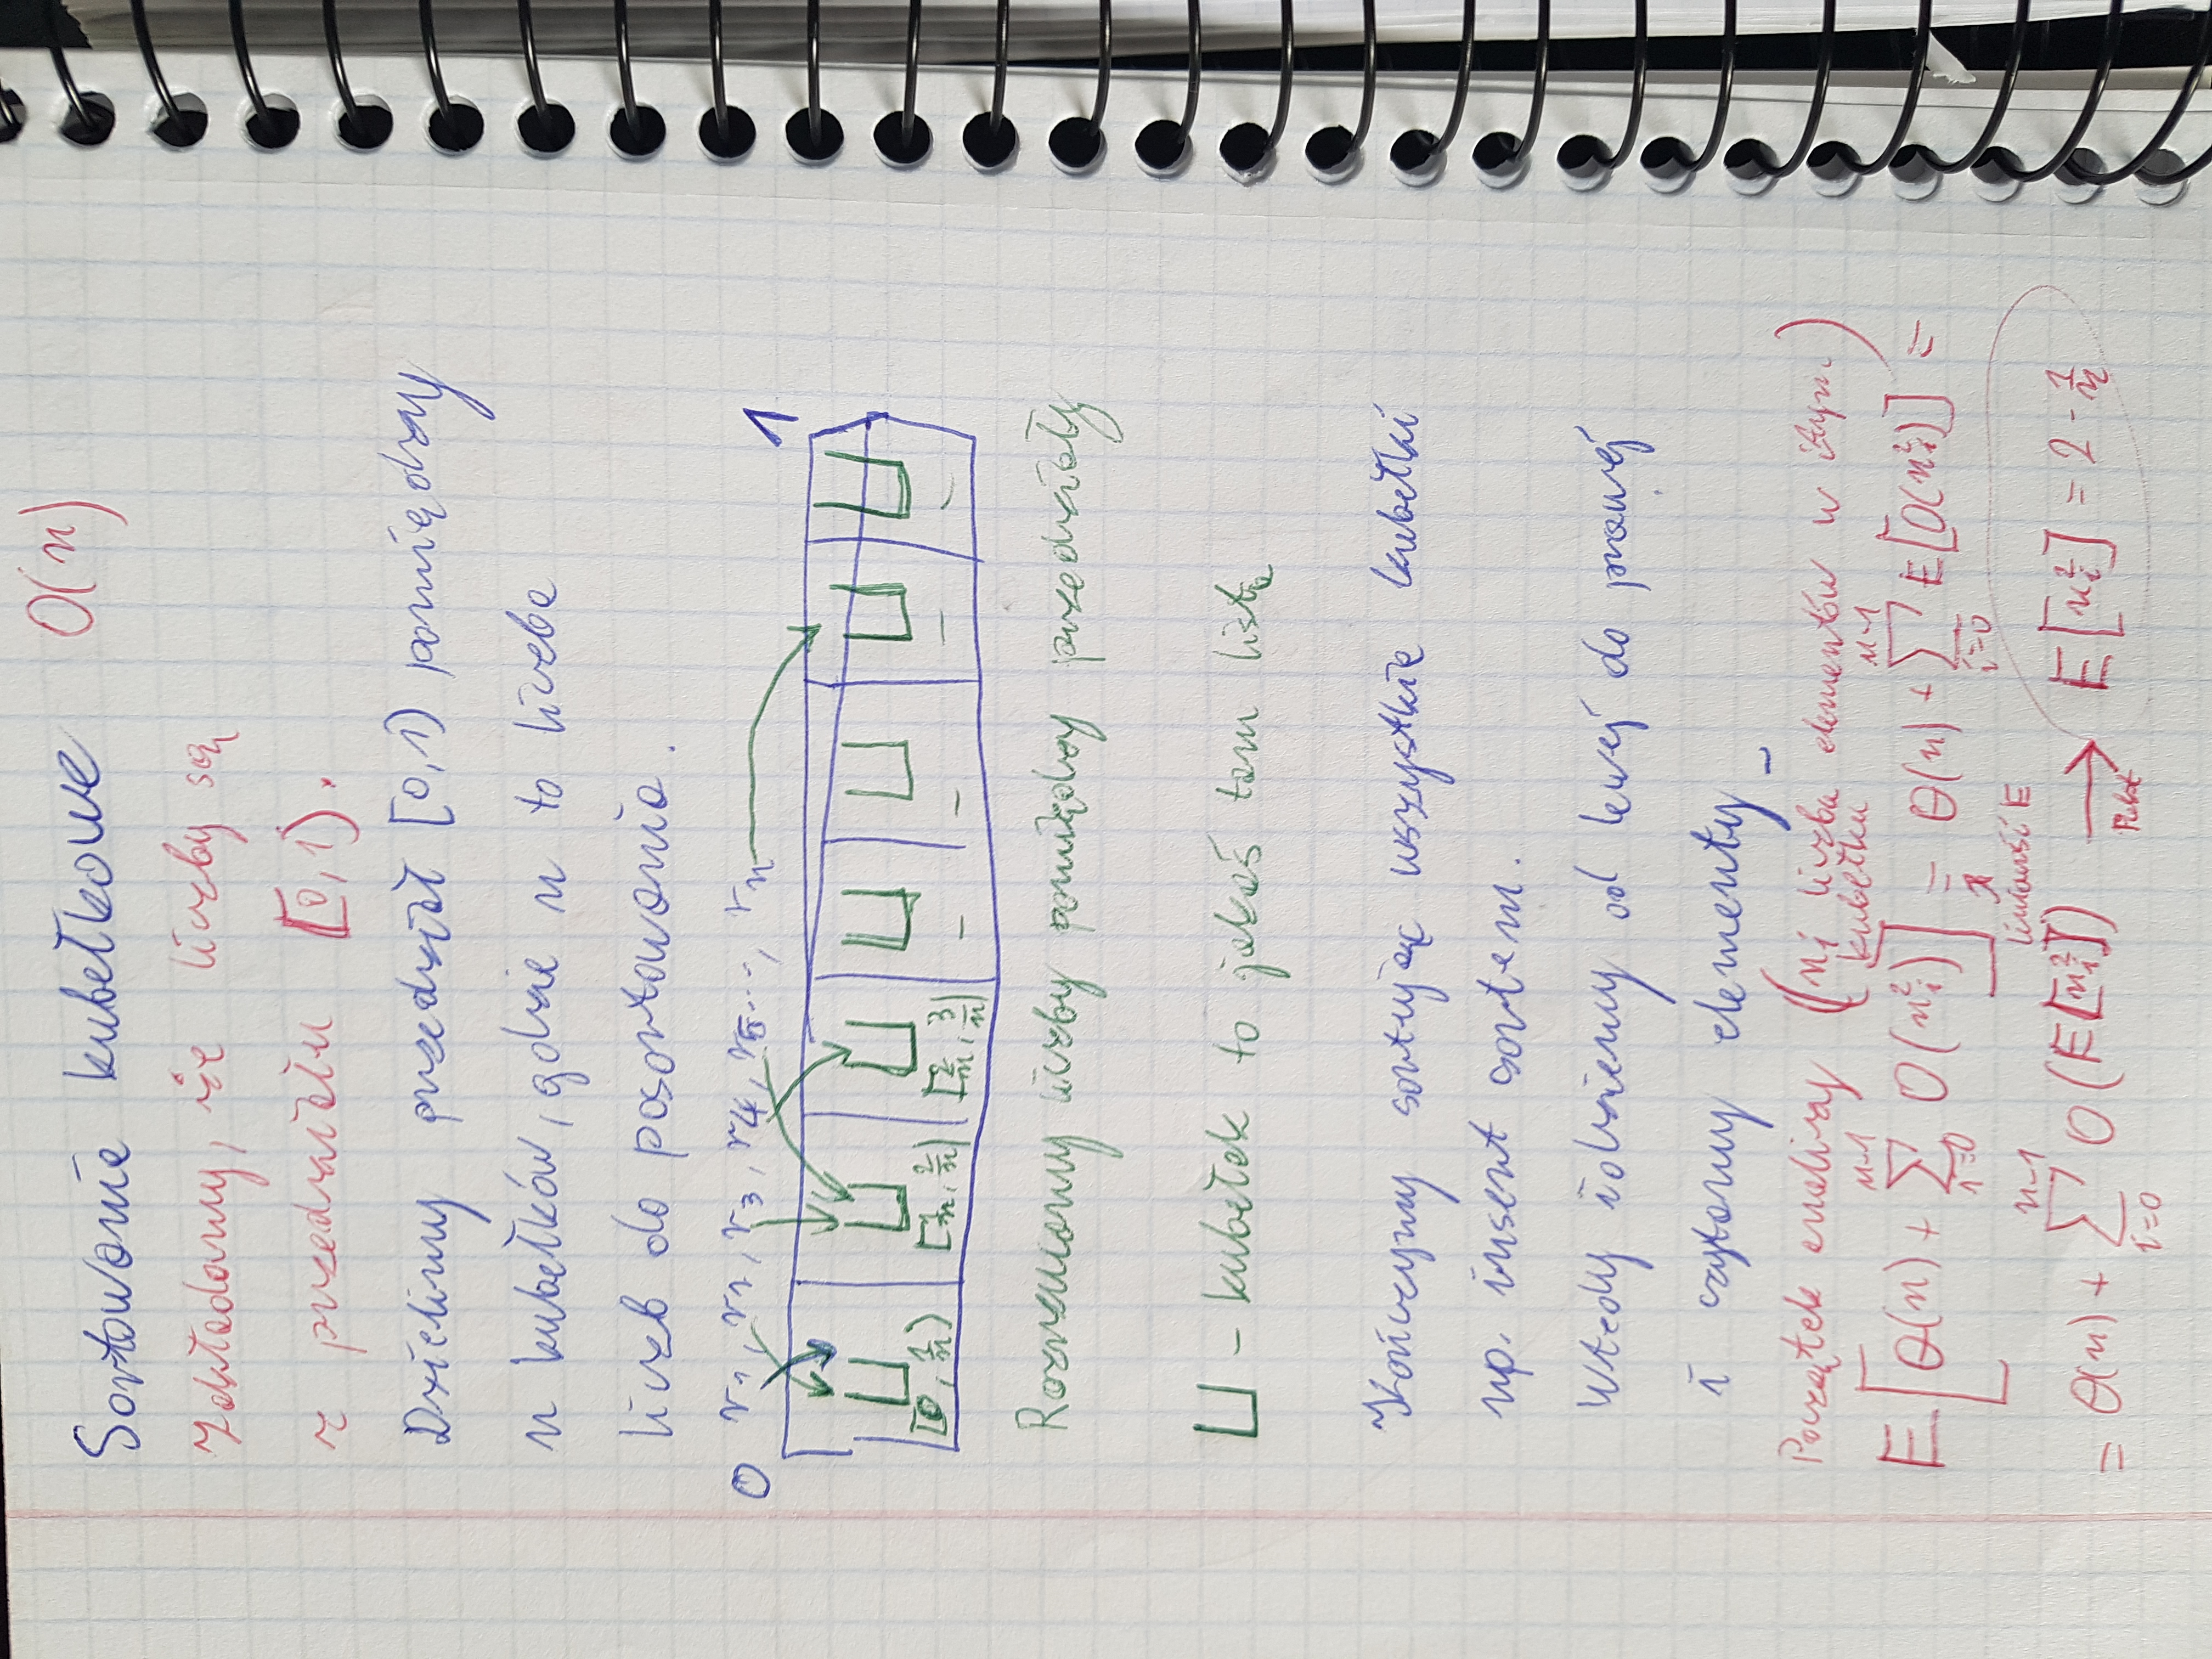 Sortowanie kubełkowe O(n)
Zakładamy, że liczby są
z przedziału [0,1).
Dzielimy przedział [0,1) pomiędzy
n kubełków, gdzie n to liczba
liczb do posortowania.
0 r₁, r₂, r₃, r₄, r₅..., rₙ 1
[0, 1/n) [1/n, 2/n) [2/n, 3/n) – – – –
Rozrzucamy liczby pomiędzy przedziały
⊔ – kubełek to jakaś tam lista
Kończymy sortując wszystkie kubełki
np. insert sortem.
Wtedy idziemy od lewej do prawej
i czytamy elementy
Początek analizy (nᵢ liczba elementów w itym
kubełku)
E[Θ(n) + Σ_{i=0}^{n-1} O(nᵢ²)] = Θ(n) + Σ_{i=0}^{n-1} E[O(nᵢ²)] =
liniowość E
= Θ(n) + Σ_{i=0}^{n-1} O(E[nᵢ²]) → E[nᵢ²] = 2 - 1/n
Fakt